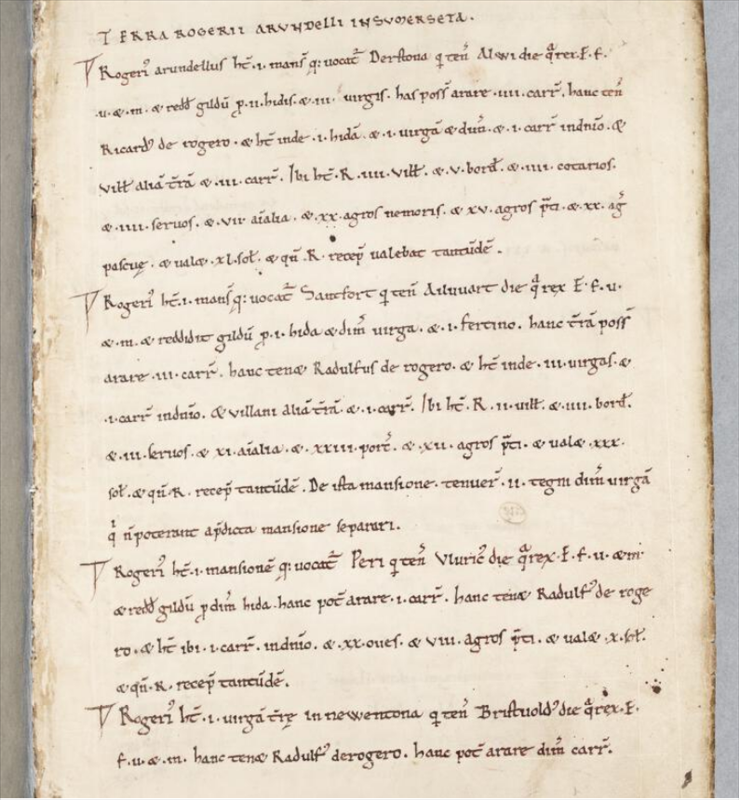 TERRA ROGERII ARUNDELLI IN SUMERSETA.
Rogeri᷒ arundellus ħt̄ .i. mans̄ q: uocat᷑ Derstona q̄ ten̄ Alwi die q̄ rex. E. f.
.u. æ .m. æ redd̄ gildū ꝑ .ii. hidis. æ .iii. virgis. has poss̄ arare .iiii. carr̄. hanc ten̄
Ricard᷒ de rogero. æ ħt̄ inde .i. hidā. æ .i. virgā æ dim̄. æ .i. carr̄ in dn̄io. æ
vill̄ aliā t̄rā æ .iii. carr̄. Ibi ħt̄ .R. iiii. vill̄. æ .v. bord̄. æ .iiii. cotarios.
æ .iiii. seruos. æ vii aīalia. æ .xx. agros nemoris. æ xv. agros p̄ti. æ .xx. aḡ
pascuę. æ valæ .xl. sol̄. æ qn̄ .R. recep̄ valebat tantūdē.
Rogeri᷒ ħt̄ .i. mans̄ q: uocat᷑ Santfort q̄ ten̄ Ailuuart die q̄ rex E. f. u.
æ .m. æ reddidit gildū ꝑ .i. hida æ dim̄ virga. æ .i. fertino. hanc t̄rā poss̄
arare .iii. carr̄. hanc tenæ Radulfus de rogero. æ ħt̄ inde .iii. virgas. æ
.i. carr̄ in dn̄io. æ villani aliā t̄rā. æ .i. carr̄. Ibi ħt̄ .R. ii. vill̄. æ .iiii. bord̄.
æ .iii. seruos. æ xi. aīalia. æ .xxiii. porc̄. æ .xii. agros p̄ti. æ valæ .xxx.
sol̄. æ qn̄ .R. recep̄ tantūdē. De ista mansione. tenuer̄ .ii. tegni dim̄ virgā
q̄ n̄ poterant a p̄dicta mansione separari.
Rogeri᷒ ħt̄ .i. mansionē q: uocat᷑ Peri q̄ ten̄ Vluric᷒ die q̄ rex. E. f. u. æ m.
æ redd̄ gildū ꝑ dim̄ hida. hanc pot᷑ arare .i. carr̄. hanc tenæ Radulf᷒ de roge
ro. æ ħt̄ ibi .i. carr̄ in dn̄io. æ .xx. oues. æ viii. agros p̄ti. æ valæ .x. sol̄.
æ qn̄ .R. recep̄ tantūdē.
Rogeri᷒ ħt̄ .i. virgā t̄rę in newentona q̄ ten̄ Bristuold᷒ die q̄ rex. E.
f. u. æ .m. hanc tenæ Radulf᷒ de rogero. hanc pot᷑ arare dim̄ carr̄.